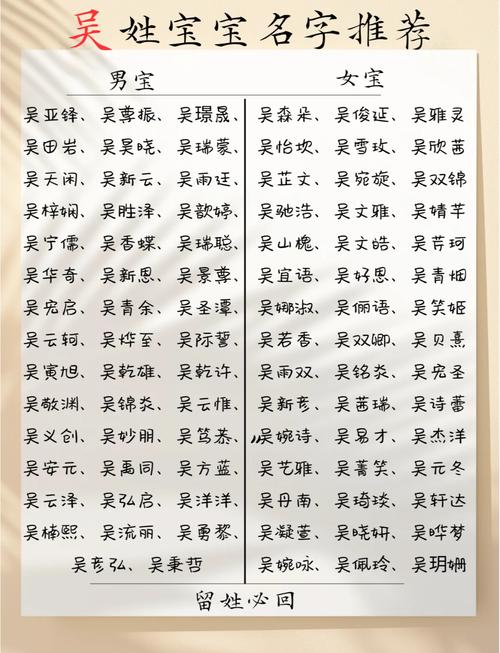 吴姓宝宝名字推荐
男宝
吴亚锋、吴尊振、吴璟晟、
吴田岩、吴昊晓、吴瑞蒙、
吴天闲、吴新云、吴雨廷、
吴梓娴、吴胜泽、吴歆婷、
吴宁儒、吴香蝶、吴瑞聪、
吴华奇、吴新恩、吴景尊、
吴宏启、吴青余、吴圣潭、
吴云轲、吴烨至、吴际誓、
吴寅旭、吴乾雄、吴乾许、
吴敬渊、吴锦焱、吴云惟、
吴义创、吴妙朋、吴笃恭、
吴安元、吴禹同、吴方蓝、
吴云泽、吴弘启、吴洋洋、
吴楠熙、吴流丽、吴勇黎、
吴彦弘、吴秉哲
女宝
吴森朵、吴俊延、吴雅灵
吴怡坎、吴雪玫、吴欣茜
吴芷文、吴宛旋、吴双锦
吴驰浩、吴文雅、吴婧芊
吴山槐、吴文皓、吴芹珂
吴宜语、吴好恩、吴青烟
吴娜淑、吴俪语、吴笑姬
吴若香、吴双卿、吴贝熹
吴雨双、吴铭焱、吴宏圣
吴新彦、吴茜瑞、吴诗蕾
吴婉诗、吴易才、吴杰洋
吴艺雅、吴菁笑、吴元冬
吴丹南、吴琦琰、吴轩达
吴凝萱、吴晓妍、吴晔梦
吴婉咏、吴佩玲、吴玥姗
留姓必回